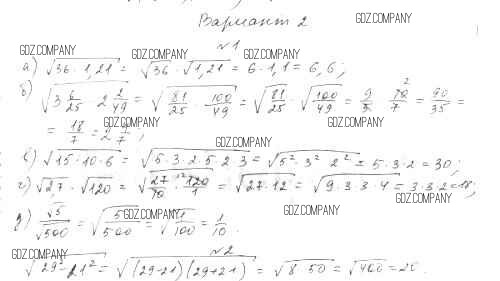 Вариант 2
GDZ.COMPANY
№1
GDZ.COMPANY GDZ.COMPANY GDZ.COMPANY
а) √36 · 1,21 = √36 · √1,21 = 6 · 1,1 = 6,6;
б) √3 6/25 · 2 2/49 = √81/25 · 100/49 = √81/25 · √100/49 = 9/5 · 10/7 = 90/35 =
GDZ.COMPANY GDZ.COMPANY
= 18/7 = 2 4/7;
GDZ.COMPANY
в) √15 · 10 · 6 = √5 · 3 · 2 · 5 · 2 · 3 = √5² · 3² · 2² = 5 · 3 · 2 = 30;
GDZ.COMPANY GDZ.COMPANY
г) √2,7 · √120 = √27/10 · 120/1 = √27 · 12 = √9 · 3 · 3 · 4 = 3 · 3 · 2 = 18;
GDZ.COMPANY
д) √5/√500 = √5/500 = √1/100 = 1/10.
GDZ.COMPANY GDZ.COMPANY
№2
GDZ.COMPANY
√29² - 21² = √(29-21)(29+21) = √8 · 50 = √400 = 20.